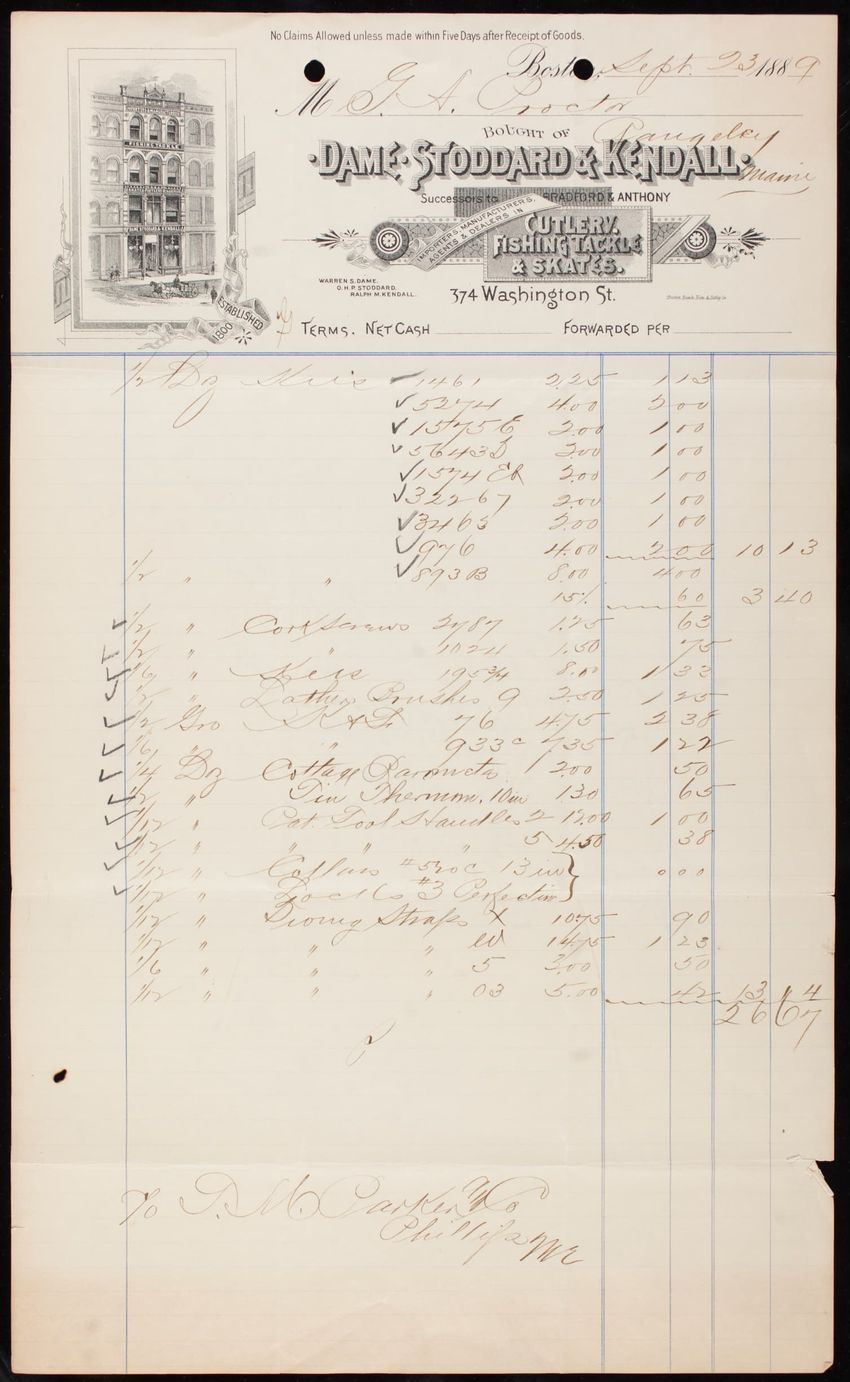 No Claims Allowed unless made within Five Days after Receipt of Goods.
Boston, Sept. 23, 1889
M G. A. Proctor
BOUGHT OF Rangeley
DAME, STODDARD & KENDALL. Maine
Successors to BRADFORD & ANTHONY
IMPORTERS, MANUFACTURERS, AGENTS & DEALERS IN
CUTLERY,
FISHING TACKLE
& SKATES.
FISHING TACKLE
DAME STODDARD & KENDALL
WARREN S. DAME.
O. H. P. STODDARD.
RALPH M. KENDALL.
374 Washington St.
ESTABLISHED
1800
TERMS. NET CASH FORWARDED PER
1/2 Doz 1461 2.25 1 13
5274 4.00 2 00
1575 E 2.00 1 00
5643 D 2.00 1 00
1574 2.00 1 00
32267 2.00 1 00
3463 2.00 1 00
976 4.00 2 00 10 13
1/2 " " 893 B 8.00 4 00
15% 60 3 40
1/2 " Cork Screws 2787 1.25 63
1/2 " " 1024 1.50 75
1/6 " 195 3/4 8.00 1 33
1/2 " Lather Brushes 9 2.50 1 25
1/2 Gro K & F 76 4.75 2 38
1/6 " " 933c 7.35 1 22
1/4 Doz Cottage 2.00 50
1/2 " Tin Thermom. 10 in 1.30 65
1/12 " Pat. Tool Handles 2 12.00 1 00
1/12 " " " " 5 4.50 38
1/12 " Collars # 13 in 000
1/12 " Locks #3 Perfection
1/12 " Straps X 10.75 90
1/12 " " " 14.75 1 23
1/6 " " " 5 3.00 50
1/12 " " " 03 5.00 42 13 14
26 67
c/o D. M. Parker & Co
Phillips Me